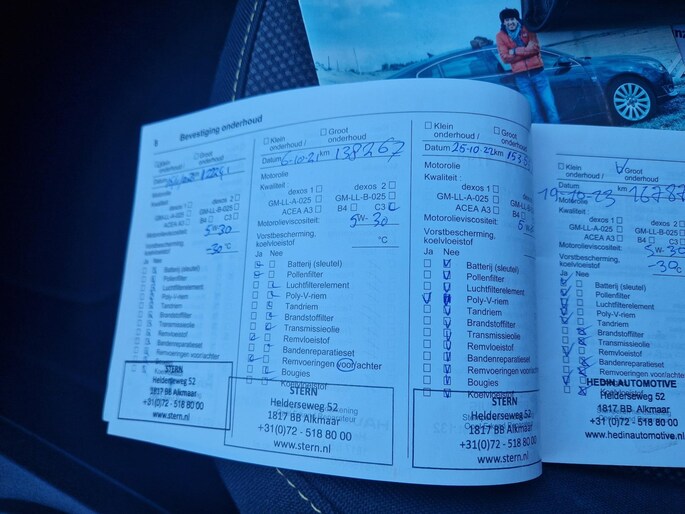 8 Bevestiging onderhoud
☐ Klein onderhoud /
☐ Groot onderhoud
Datum
Motorolie
Kwaliteit:
dexos 1 ☐ dexos 2 ☐
GM-LL-A-025 ☐ GM-LL-B-025 ☐
ACEA A3 ☐ B4 ☐ C3 ☐
Motorolieviscositeit: 5W30
Vorstbescherming,
koelvloeistof
-30 °C
Ja Nee
Batterij (sleutel)
Pollenfilter
Luchtfilterelement
Poly-V-riem
Tandriem
Brandstoffilter
Transmissieolie
Remvloeistof
Bandenreparatieset
Remvoeringen voor/achter
Bougies
STERN
Helderseweg 52
1817 BB Alkmaar
+31(0)72 - 518 80 00
www.stern.nl
☐ Klein onderhoud /
☐ Groot onderhoud
Datum 6-10-21 km 138267
Motorolie
Kwaliteit :
dexos 1 ☐ dexos 2 ☐
GM-LL-A-025 ☐ GM-LL-B-025 ☐
ACEA A3 ☐ B4 ☐ C3
Motorolieviscositeit: 5W-30
Vorstbescherming,
koelvloeistof
°C
Ja Nee
Batterij (sleutel)
Pollenfilter
Luchtfilterelement
Poly-V-riem
Tandriem
Brandstoffilter
Transmissieolie
Remvloeistof
Bandenreparatieset
Remvoeringen voor/achter
Bougies
Koelvloeistof
STERN
Helderseweg 52
1817 BB Alkmaar
+31(0)72 - 518 80 00
www.stern.nl
☐ Klein onderhoud /
☐ Groot onderhoud
Datum 25-10-22 km
Motorolie
Kwaliteit :
dexos 1 ☐
GM-LL-A-025 ☐
ACEA A3 ☐
Motorolieviscositeit:
Vorstbescherming,
koelvloeistof
Ja Nee
Batterij (sleutel)
Pollenfilter
Luchtfilterelement
Poly-V-riem
Tandriem
Brandstoffilter
Transmissieolie
Remvloeistof
Bandenreparatieset
Remvoeringen voor/achter
Bougies
Koelvloeistof
STERN
Helderseweg 52
1817 BB Alkmaar
+31(0)72 - 518 80 00
www.stern.nl
☐ Klein onderhoud /
Groot onderhoud
Datum km
Motorolie
Kwaliteit :
dexos 1 ☐ dexos 2
GM-LL-A-025 ☐ GM-LL-B-025
ACEA A3 ☐ B4 ☐ C3
Motorolieviscositeit: 5W-30
Vorstbescherming,
koelvloeistof
Ja Nee
Batterij (sleutel)
Pollenfilter
Luchtfilterelement
Poly-V-riem
Tandriem
Brandstoffilter
Transmissieolie
Remvloeistof
Bandenreparatieset
Remvoeringen voor/achter
Bougies
Koelvloeistof
HEDIN AUTOMOTIVE
Helderseweg 52
1817 BB Alkmaar
+31(0)72 - 518 80 00
www.hedinautomotive.nl